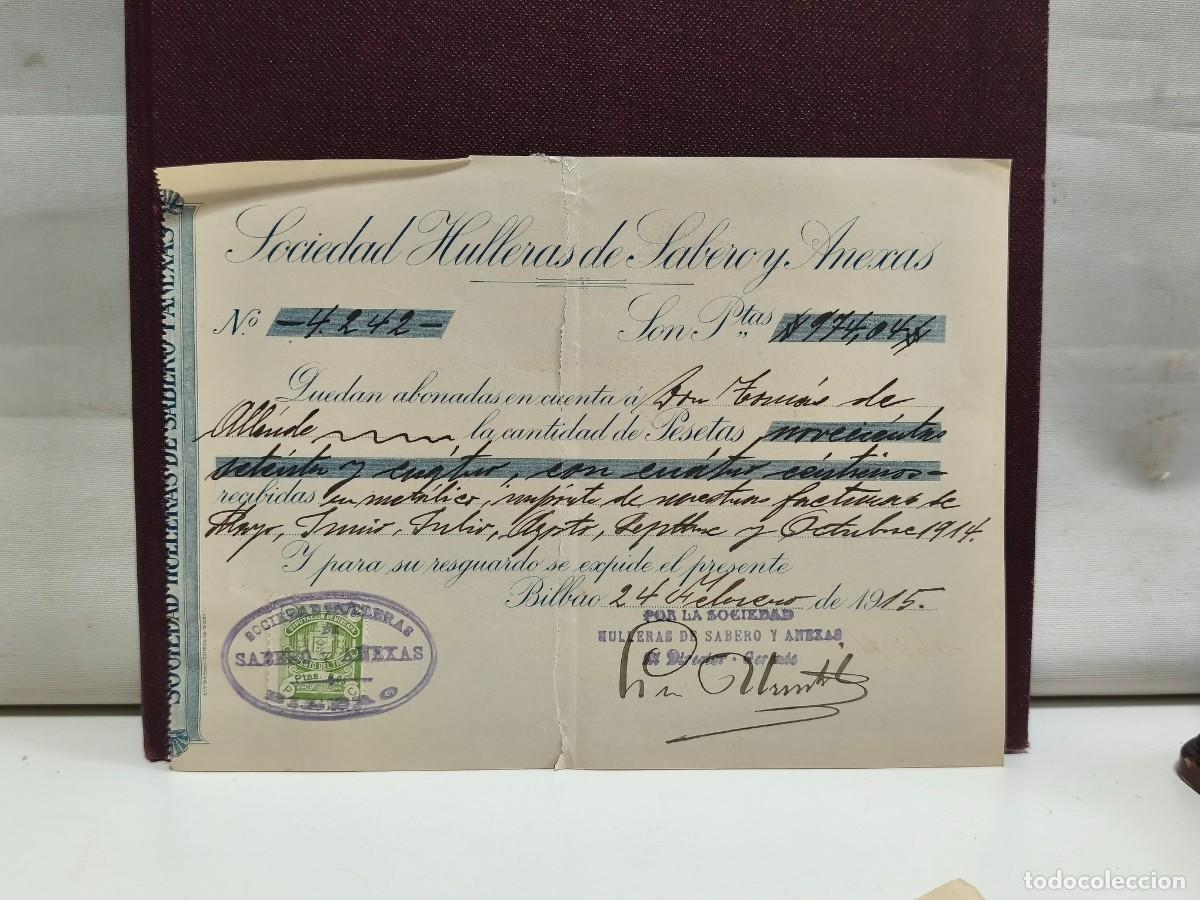 SOCIEDAD HULLERAS DE SABERO Y ANEXAS
Sociedad Hulleras de Sabero y Anexas
Nº -4.242-
Son Ptas $974,04$
Quedan abonadas en cuenta á Don Tomás de
Allénde la cantidad de Pesetas novecientas
setenta y cuatro, con cuatro céntimos-
recibidas en metálico, importe de nuestras facturas de
Mayo, Junio, Julio, Agosto, Septbre y Octubre 1914.
Y para su resguardo se expide el presente
Bilbao 24 Febrero de 1915.
SOCIEDAD HULLERAS
DE
SABERO Y ANEXAS
BILBAO
DIPUTACION DE VIZCAYA
Ptas.
POR LA SOCIEDAD
HULLERAS DE SABERO Y ANEXAS
El Director - Gerente
todocoleccion